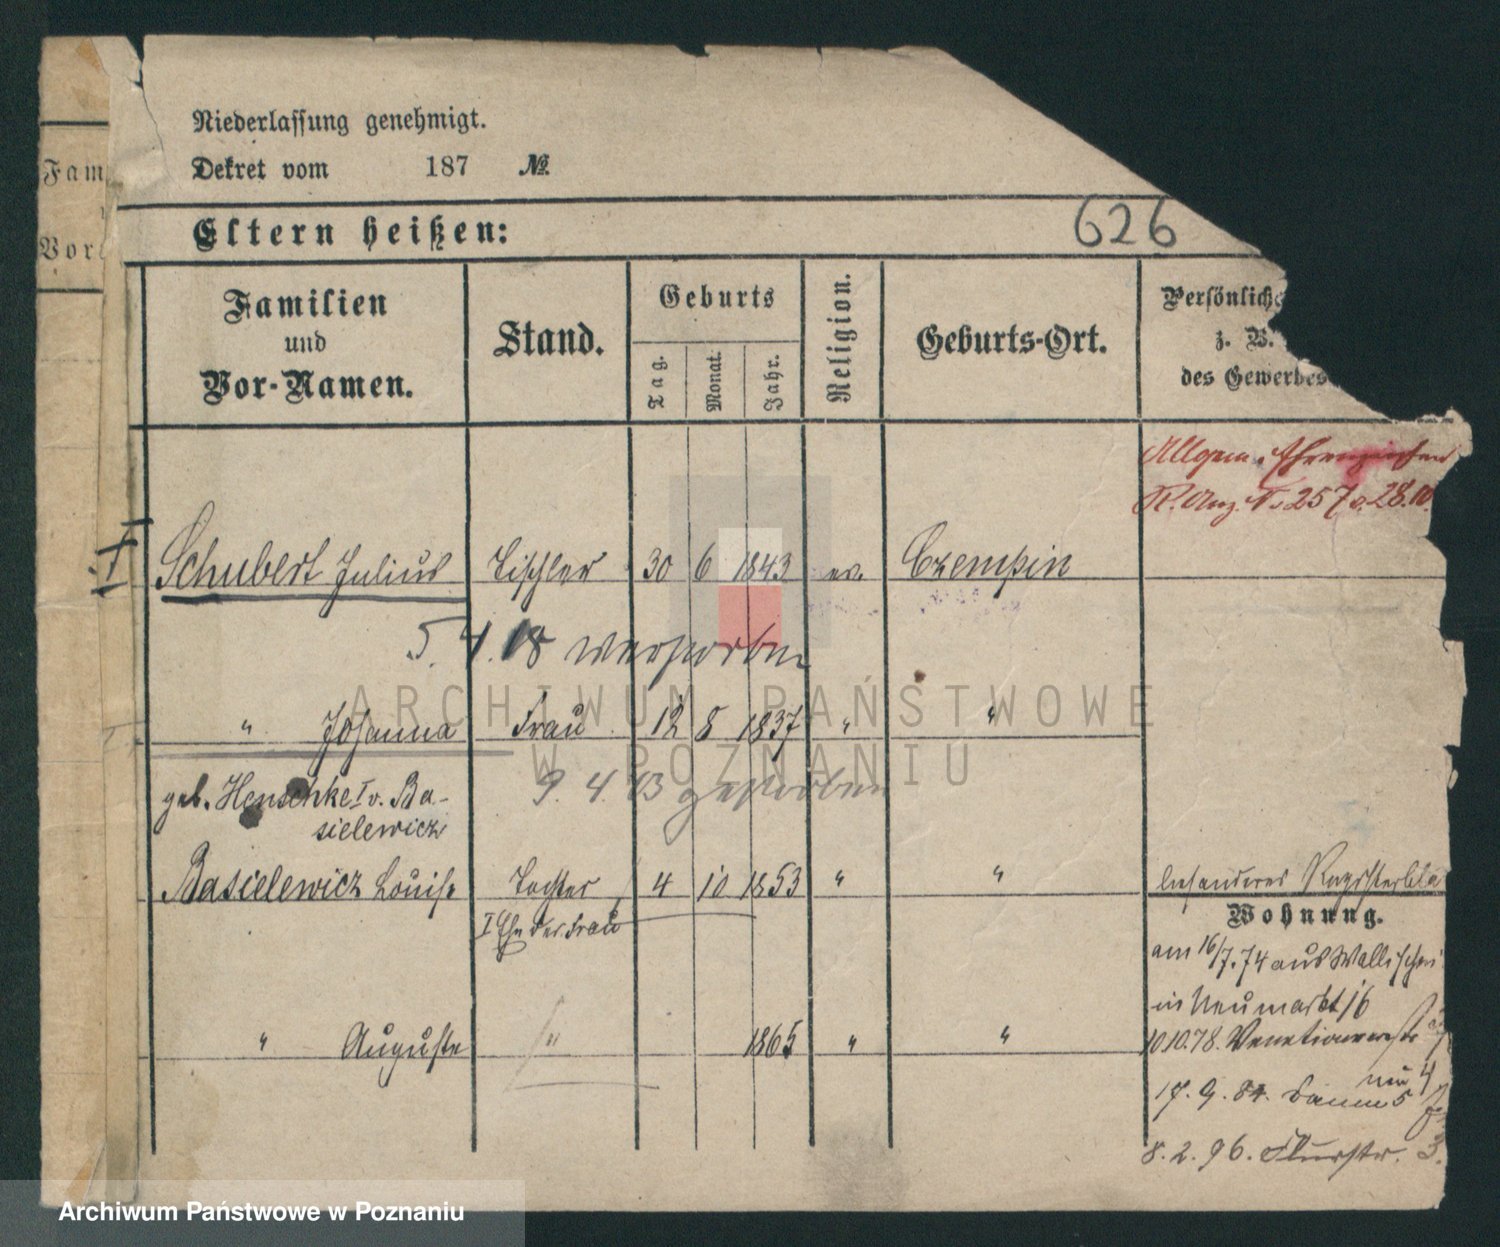 Niederlassung genehmigt.
Dekret vom 187 №
Eltern heißen:
626
Fam
Vor
Familien
und
Vor-Namen.
Stand.
Geburts
Tag.
Monat.
Jahr.
Religion.
Geburts-Ort.
Persönliche
z. B.
des Gewerbes
Allgem. Ehrenzeichen
R. Anz. N. 257 v. 28.10.
I
Schubert Julius Tischler 30 6 1843 ev. Czempin
5. 4. 18 verstorben
" Johanna Frau 12 8 1837 " "
geb. Henschke I v. Ba-
sielewicz
9. 4. 13 gestorben
Basielewicz Louise Tochter 4 10 1853 " "
I Ehe der Frau
besonderes Registerbla
Wohnung.
am 16/7.74 aus Wallischei
in Neumarkt 16
" Auguste " 1865 " "
10 10.78. Venetianerstr
17. 9. 84. 5
nu 4
8. 2. 96. Flurstr. 3.
ARCHIWUM PAŃSTWOWE
W POZNANIU
Archiwum Państwowe w Poznaniu